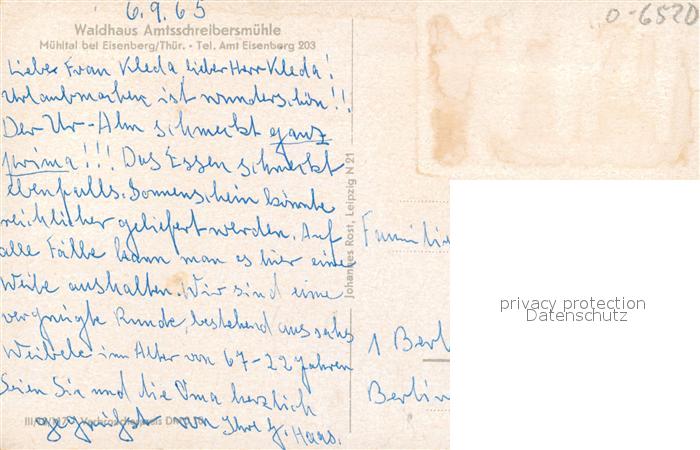 6.9.65
o-6520
Waldhaus Amtsschreibersmühle
Mühltal bei Eisenberg/Thür. · Tel. Amt Eisenberg 203
Liebe Frau Kleda lieber Herr Kleda!
Urlaubmachen ist wunderschön!!
Der Ur-Alm schmeckt ganz
prima!!! Das Essen schmeckt
ebenfalls. Sonnenschein könnte
reichlicher geliefert werden. Auf
alle Fälle kann man es hier eine
Weile aushalten. Wir sind eine
vergnügte Runde, bestehend aus sechs
Weibele im Alter von 67-22 Jahren
Seien Sie und die Oma herzlich
gegrüsst von Ihre J. Haas.
Johannes Rost, Leipzig N 21
Familie
1 Berl
Berlin
privacy protection
Datenschutz